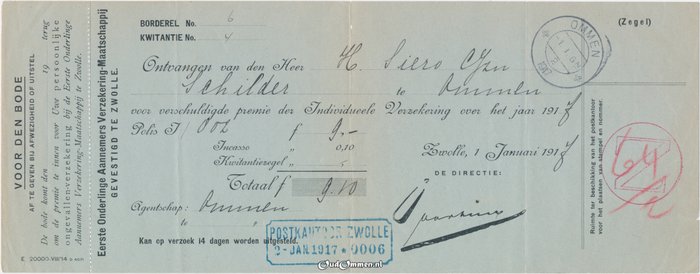 VOOR DEN BODE
AF TE GEVEN BIJ AFWEZIGHEID OF UITSTEL
De bode komt den 19 terug
om de premie te innen voor Uwe persoonlijke
ongevallen-verzekering bij de Eerste Onderlinge
Aannemers Verzekering-Maatschappij te Zwolle.
E 20000-VIII/'14
Eerste Onderlinge Aannemers Verzekering-Maatschappij
GEVESTIGD TE ZWOLLE.
BORDEREL No. 6
KWITANTIE No. 4
(Zegel)
OMMEN
1917
Ontvangen van den Heer H. Siero Czn
Schilder te Ommen
voor verschuldigde premie der Individueele Verzekering over het jaar 1917
Polis I/002 f 9.-
Incasso „ 0,10
Kwitantiezegel „
Zwolle, 1 Januari 1917
Totaal f 9.10
DE DIRECTIE:
Agentschap: Ommen
te
Kan op verzoek 14 dagen worden uitgesteld.
POSTKANTOOR ZWOLLE
2-JAN.1917 * 0006
Ruimte ter beschikking van het postkantoor
voor het plaatsen van stempel en nommer.
64
OudOmmen.nl